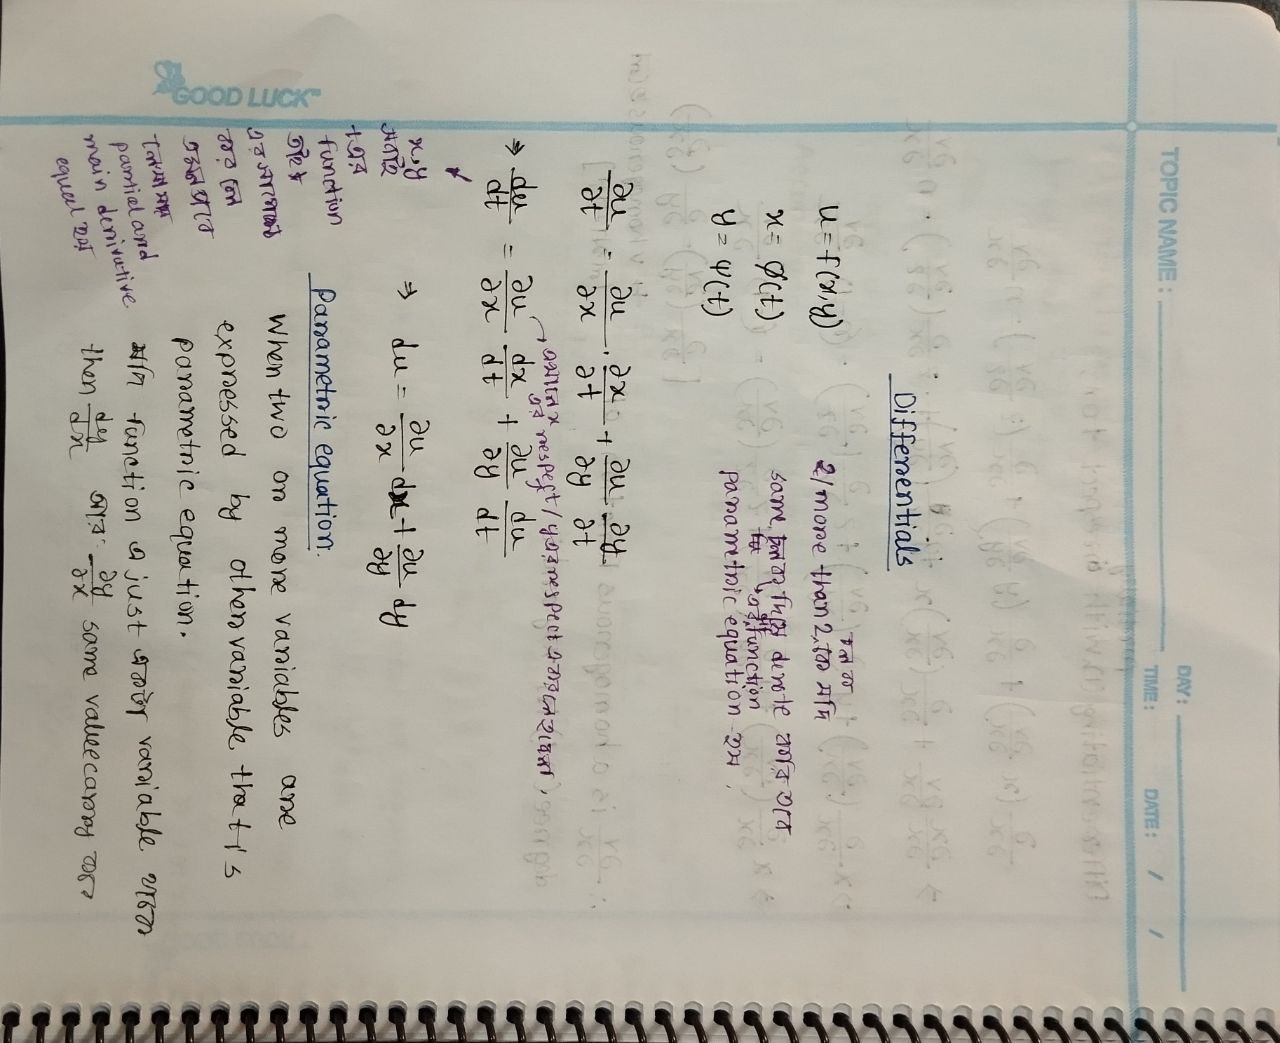 TOPIC NAME :
DAY :
TIME : DATE : / /
Differentials
u = f(x,y)
x = φ(t)
y = ψ(t)
চলক
2/more than 2 কে যদি
same চলক দিয়ে denote করি তবে
এর function
parametric equation হয়.
∂u/∂t = ∂u/∂x . ∂x/∂t + ∂u/∂y . ∂y/∂t
এখানে x এর respect / y এর respect এ
⇒ du/dt = ∂u/∂x dx/dt + ∂u/∂y du/dt
⇒ du = ∂u/∂x dx + ∂u/∂y dy
x,y
সবাই
t এর
function
তাই
এর সাপেক্ষে
করলে
partial and
main derivative
equal হয়
Parametric equation.
When two or more variables are
expressed by other variable that is
parametric equation.
যদি function এ just একটা variable থাকে
then dy/dx আর ∂y/∂x same value carry করে
GOOD LUCK